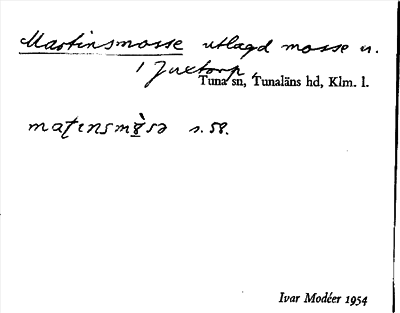 Martinsmosse utlagd mosse u.
1 Juxtorp,
Tuna sn, Tunaläns hd, Klm. l.
maʈɩnsmɞ̀sə s. 58.
Ivar Modéer 1954